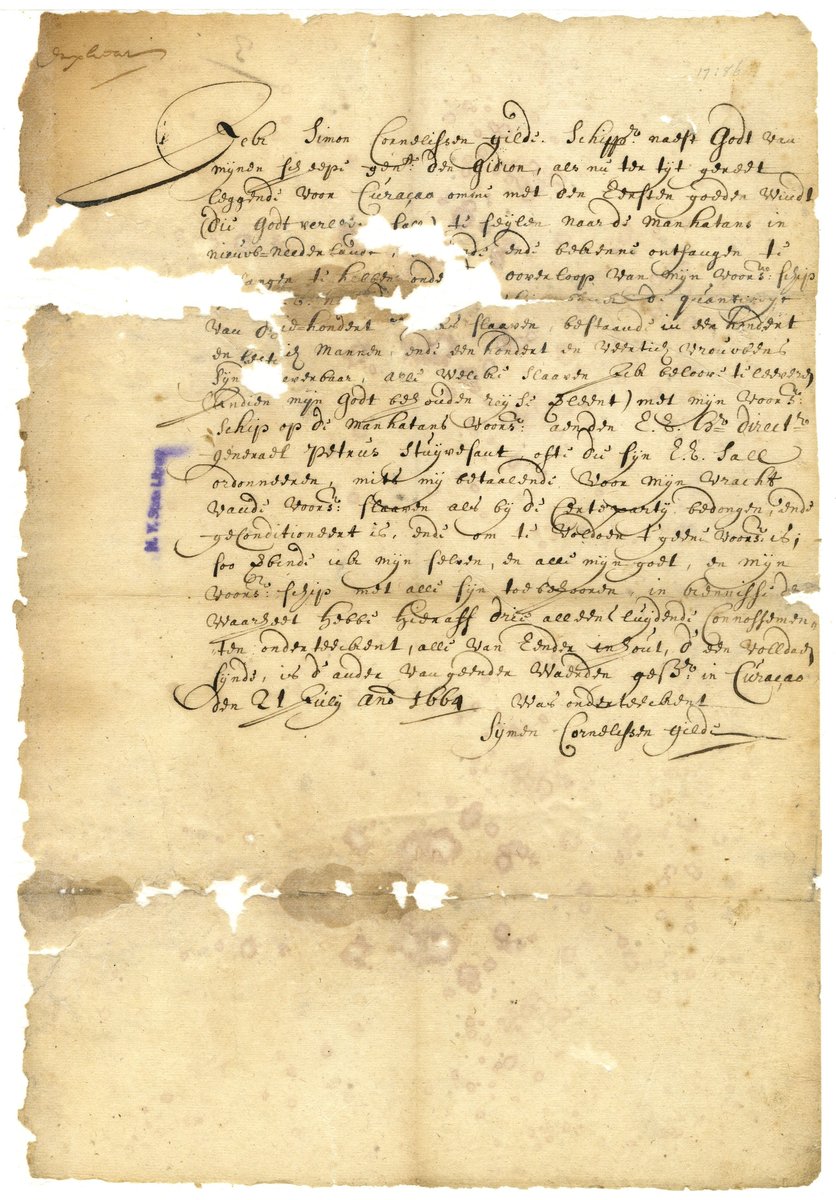 17:86
Ick Simon Cornelissen gilde. Schippr. naest Godt van
mijnen scheepe gent. den Gidion, als nu ter tijt gereet
leggende voor Curaçao omme met den Eersten goeden windt
(die Godt te seylen naar de Manhatans in
nieuw=nederlandt, ende bekenne ontfangen te
te hebben onder ooverloop van mijn voorsr: schip
de quantiteyt
van hondert slaaven, bestaande in een hondert
en Mannen, ende een hondert en veertich vrouwen
sijn , alle welcke slaaven Ick beloove te leeveren
(indien mijn Godt behouden reyse verleent) met mijn voorsr:
schip op de Manhatans voorsr: aen den E. E. Hr. direct.r
generael Petrus Stuyvesant, ofte die sijn E. E. sall
ordonneeren, mits mij betaalende voor mijn vracht
vande voorsr: slaaven als bij de Certeparty bedongen, ende
geconditioneert is, ende om te voldoen 't geene voorsr: is,
soo verbinde ick mijn selven, en alle mijn goet, en mijn
voorsr: schip met alle sijn toebehooren, in kennisse de
waarheet hebbe hieraff drie alleens luijdende Connossemen„
ten onderteeckent, alle van Eender inhout, d'een volldaen
sijnde, is d'ander van geender waerden gesr. in Curaçao
den 21 July Ano 1664 Was onderteeckent
Sijmen Cornelissen gilde
N. Y. State Library